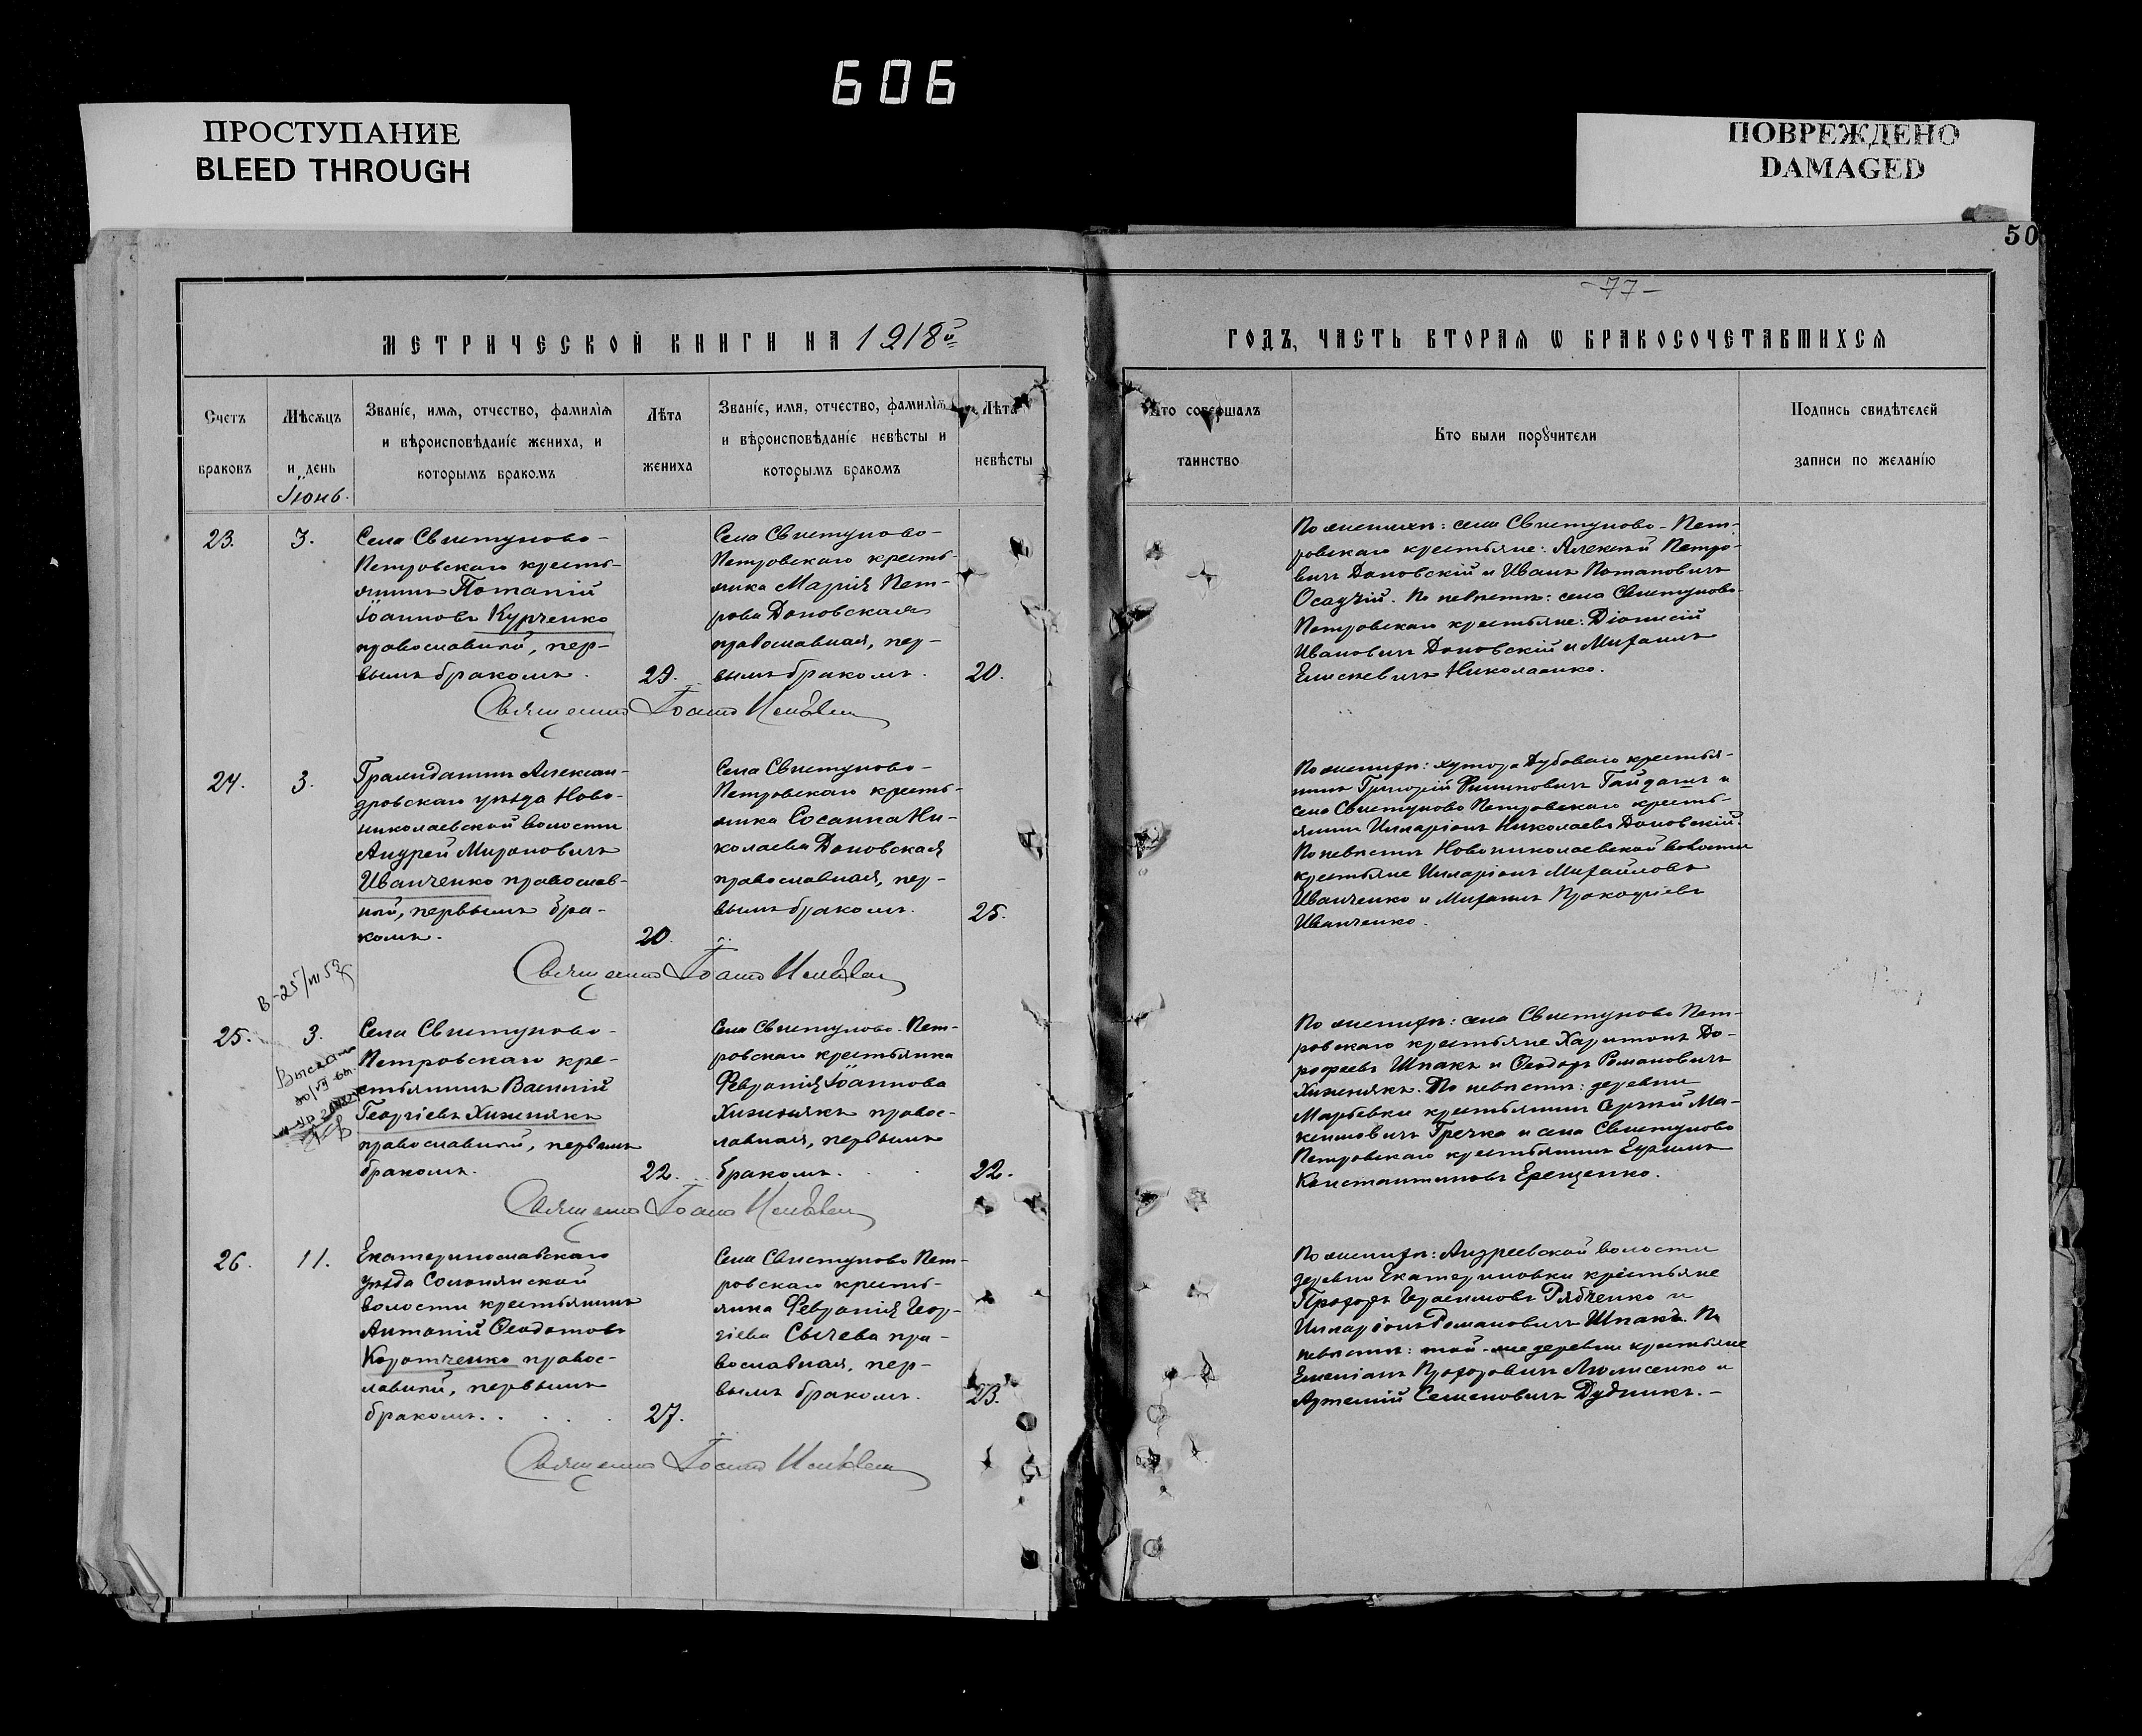 606
ПРОСТУПАНИЕ
BLEED THROUGH
ПОВРЕЖДЕНО
DAMAGED
50
-77-
МЕТРИЧЕСКОЙ КНИГИ НА 1918й
ГОДЪ, ЧАСТЬ ВТОРАЯ Ѡ БРАКОСОЧЕТАВШИХСЯ
Счетъ
браковъ
Мѣсяцъ
и день
Іюнь.
Званіе, имя, отчество, фамилія
и вѣроисповѣданіе жениха, и
которымъ бракомъ
Лѣта
жениха
Званіе, имя, отчество, фамилія
и вѣроисповѣданіе невѣсты и
которымъ бракомъ
Лѣта
невѣсты
Кто совершалъ
таинство
Кто были порꙋчители
Подпись свидѣтелей
записи по желанію
23.
3.
Села Свистуново-
Петровскаго кресть-
янинъ Потапій
Іоанновъ Курченко
православный, пер-
вымъ бракомъ.
29.
Села Свистуново-
Петровскаго кресть-
янка Марія Пет-
рова Доновская
православная, пер-
вымъ бракомъ.
20.
Священникъ Іоаннъ
По женихѣ: села Свистуново-Пет-
ровскаго крестьяне: Алексѣй Петро-
вичъ Доновскій и Иванъ Потаповичъ
Осадчій. По невѣстѣ: села Свистуново-
Петровскаго крестьяне: Діонисій
Ивановичъ Доновскій и Михаилъ
Николаенко.
24.
3.
Гражданинъ Алексан-
дровскаго уѣзда Ново-
николаевской волости
Андрей Мироновичъ
Иванченко православ-
ный, первымъ бра-
комъ.
20.
Села Свистуново-
Петровскаго кресть-
янка Сосанна Ни-
колаева Доновская
православная, пер-
вымъ бракомъ.
25.
Священникъ Іоаннъ
По женихѣ: хутора Дубоваго крестья-
нинъ Григорій Филиповичъ Гайдашъ и
села Свистуново Петровскаго кресть-
янинъ Илларіонъ Николаевъ Доновскій.
По невѣстѣ Новониколаевской волости
крестьяне Илларіонъ Михайловъ
Иванченко и Михаилъ Прокофіевъ
Иванченко.
В-25/III 53
25.
3.
Села Свистуново-
Петровскаго кре-
стьянинъ Василій
Георгіевъ Хижнякъ
православный, первымъ
бракомъ.
22.
Села Свистуново-Пет-
ровскаго крестьянка
Февронія Іоаннова
Хижнякъ правос-
лавная, первымъ
бракомъ.
22.
Священникъ Іоаннъ
По женихѣ: села Свистуново Пет-
ровскаго крестьяне Харитонъ До-
рофеевъ Шпакъ и Ѳеодоръ Романовичъ
Хижнякъ. По невѣстѣ: деревни
Марьевки крестьянинъ Сергѣй Ма-
ксимовичъ Гречка и села Свистуново
Петровскаго крестьянинъ Ефимъ
Константиновъ Ерещенко.
26.
11.
Екатеринославскаго
уѣзда Солонянской
волости крестьянинъ
Антоній Ѳеодотовъ
Коротченко правос-
лавный, первымъ
бракомъ.
27.
Села Свистуново Пет-
ровскаго кресть-
янка Февронія Геор-
гіева Сычева пра-
вославная, пер-
вымъ бракомъ.
23.
Священникъ Іоаннъ
По женихѣ: Андреевской волости
деревни Екатериновки крестьяне
Прохоръ Герасимовъ Рябченко и
Илларіонъ Романовичъ Шпакъ. По
невѣстѣ: той-же деревни крестьяне
Емеліанъ Прохоровичъ и
Артемій Семеновичъ Дудникъ.-